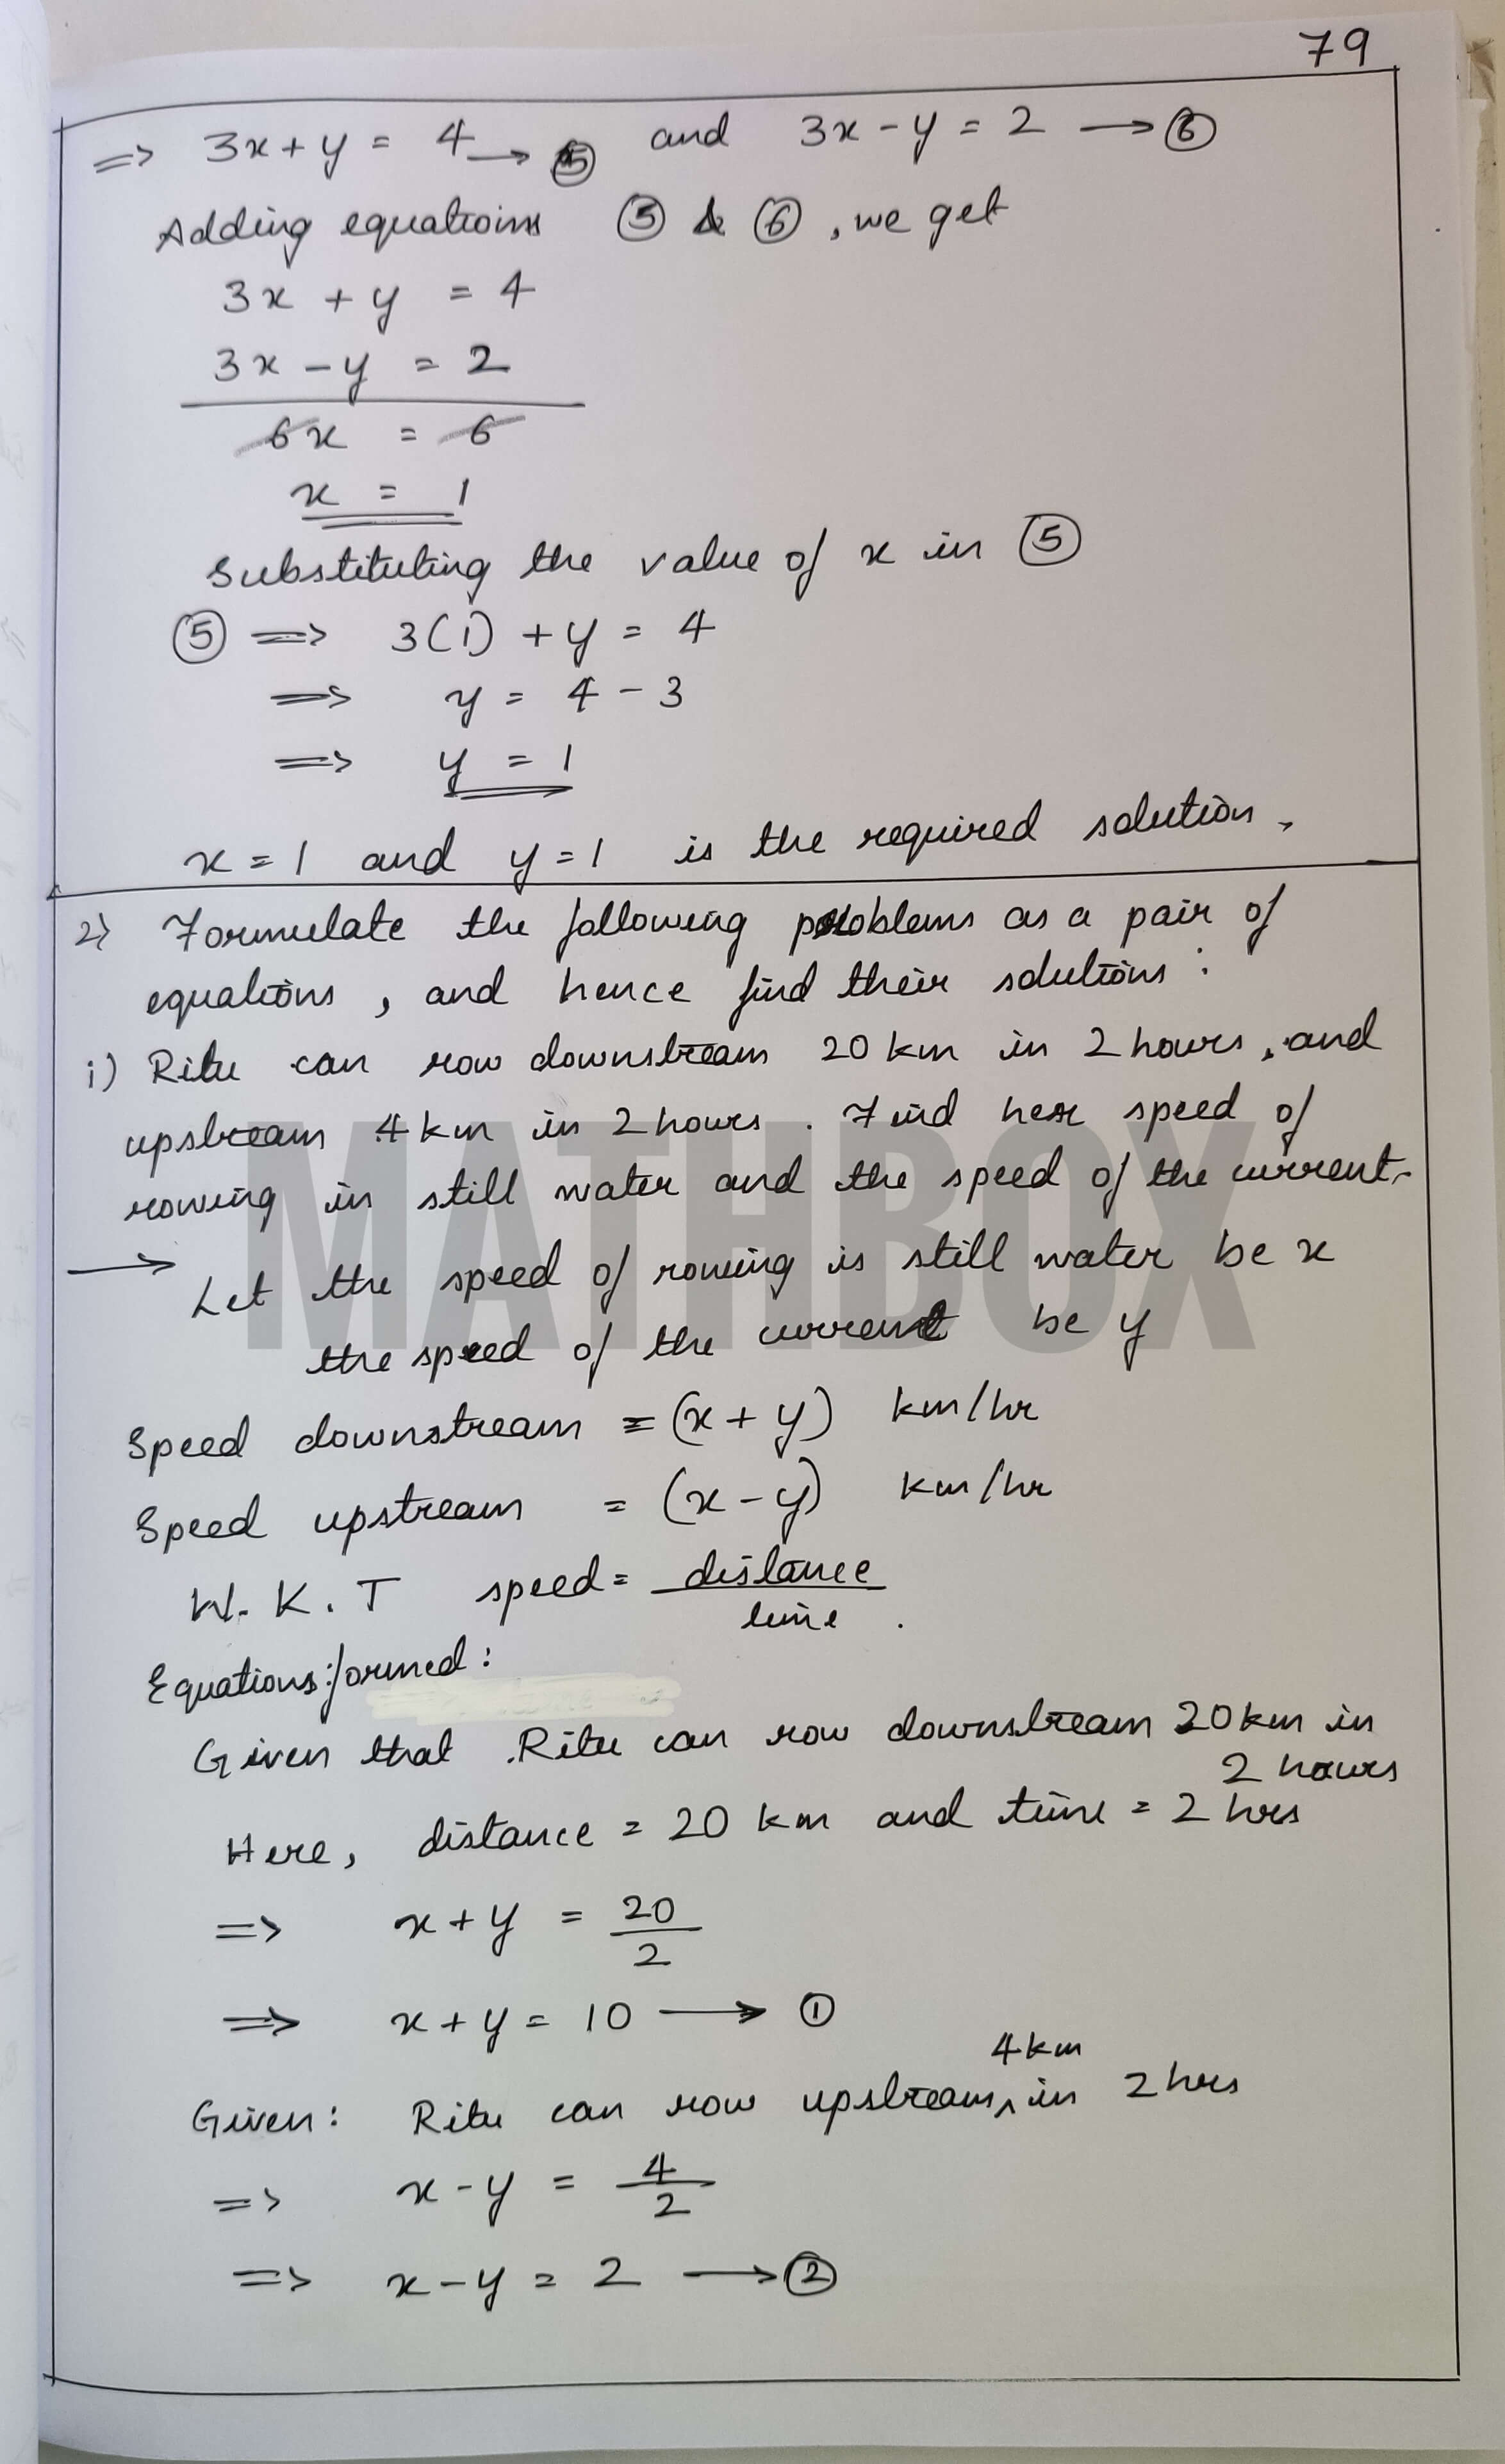 79
=> 3x + y = 4 → ⑤ and 3x - y = 2 → ⑥
Adding equations ⑤ & ⑥, we get
3x + y = 4
3x - y = 2
6x = 6
x = 1
Substituting the value of x in ⑤
⑤ => 3(1) + y = 4
=> y = 4 - 3
=> y = 1
x = 1 and y = 1 is the required solution.
2) Formulate the following problems as a pair of
equations, and hence find their solutions:
i) Ritu can row downstream 20 km in 2 hours, and
upstream 4 km in 2 hours. Find her speed of
rowing in still water and the speed of the current.
→ Let the speed of rowing is still water be x
the speed of the current be y
Speed downstream = (x + y) km/hr
Speed upstream = (x - y) km/hr
W.K.T speed = distance
time.
Equations formed:
Given that Ritu can row downstream 20 km in
2 hours
Here, distance = 20 km and time = 2 hrs
=> x + y = 20
2
=> x + y = 10 → ①
4 km
Given: Ritu can row upstream ^ in 2 hrs
=> x - y = 4
2
=> x - y = 2 → ②
MATHBOX